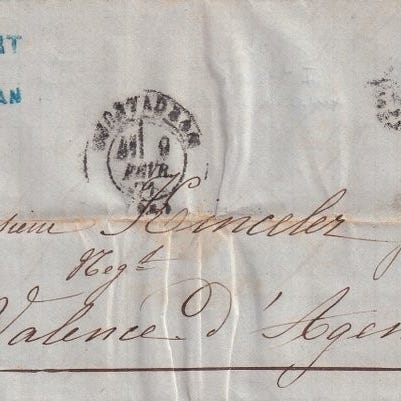 RT
AN
MONTAUBAN
9
FEVR.
71
sieur Kinceler
Negt
Valence d'Agen